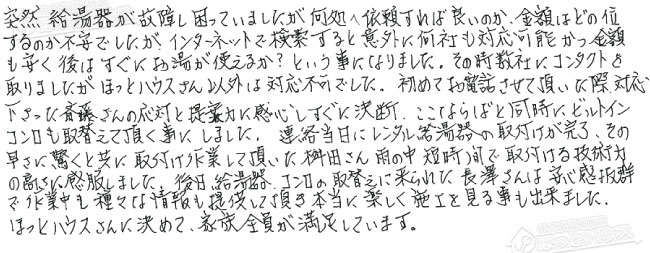 突然 給湯器が故障し困っていましたが何処へ依頼すれば良いのか、金額はどの位
するのか不安でしたが、インターネットで検索すると意外に何社も対応可能かつ金額
も安く後はすぐにお湯が使えるか？という事になりました。その時数社にコンタクトを
取りましたがほっとハウスさん以外は対応不可でした。初めてお電話させて頂いた際、対応
下さった斉藤さんの応対と提案力に感心しすぐに決断、ここならばと同時にビルトイン
コンロも取替えて頂く事にしました。連絡当日にレンタル給湯器の取付けが完了、その
早さに驚くと共に取付け作業して頂いた桝田さん雨の中短時間で取付ける技術力
の高さに感服しました。後日、給湯器、コンロの取替えに来られた長澤さんは安心感抜群
で作業中も種々な情報も提供して頂き本当に楽しく施工を見る事も出来ました。
ほっとハウスさんに決めて、家族全員が満足しています。